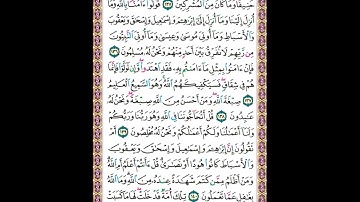 حَنِيفًا وَمَا كَانَ مِنَ الْمُشْرِكِينَ ١٣٥ قُولُوا آمَنَّا بِاللَّهِ وَمَا
أُنزِلَ إِلَيْنَا وَمَا أُنزِلَ إِلَىٰ إِبْرَاهِيمَ وَإِسْمَاعِيلَ وَإِسْحَاقَ وَيَعْقُوبَ
وَالْأَسْبَاطِ وَمَا أُوتِيَ مُوسَىٰ وَعِيسَىٰ وَمَا أُوتِيَ النَّبِيُّونَ
مِن رَّبِّهِمْ لَا نُفَرِّقُ بَيْنَ أَحَدٍ مِّنْهُمْ وَنَحْنُ لَهُ مُسْلِمُونَ ١٣٦
فَإِنْ آمَنُوا بِمِثْلِ مَا آمَنتُم بِهِ فَقَدِ اهْتَدَوا وَّإِن تَوَلَّوْا فَإِنَّمَا
هُمْ فِي شِقَاقٍ فَسَيَكْفِيكَهُمُ اللَّهُ وَهُوَ السَّمِيعُ الْعَلِيمُ
١٣٧ صِبْغَةَ اللَّهِ وَمَنْ أَحْسَنُ مِنَ اللَّهِ صِبْغَةً وَنَحْنُ لَهُ
عَابِدُونَ ١٣٨ قُلْ أَتُحَاجُّونَنَا فِي اللَّهِ وَهُوَ رَبُّنَا وَرَبُّكُمْ
وَلَنَا أَعْمَالُنَا وَلَكُمْ أَعْمَالُكُمْ وَنَحْنُ لَهُ مُخْلِصُونَ ١٣٩ أَمْ
تَقُولُونَ إِنَّ إِبْرَاهِيمَ وَإِسْمَاعِيلَ وَإِسْحَاقَ وَيَعْقُوبَ
وَالْأَسْبَاطَ كَانُوا هُودًا أَوْ نَصَارَىٰ قُلْ أَأَنتُمْ أَعْلَمُ أَمِ اللَّهُ
وَمَنْ أَظْلَمُ مِمَّن كَتَمَ شَهَادَةً عِندَهُ مِنَ اللَّهِ وَمَا اللَّهُ
بِغَافِلٍ عَمَّا تَعْمَلُونَ ١٤٠ تِلْكَ أُمَّةٌ قَدْ خَلَتْ لَهَا مَا كَسَبَتْ